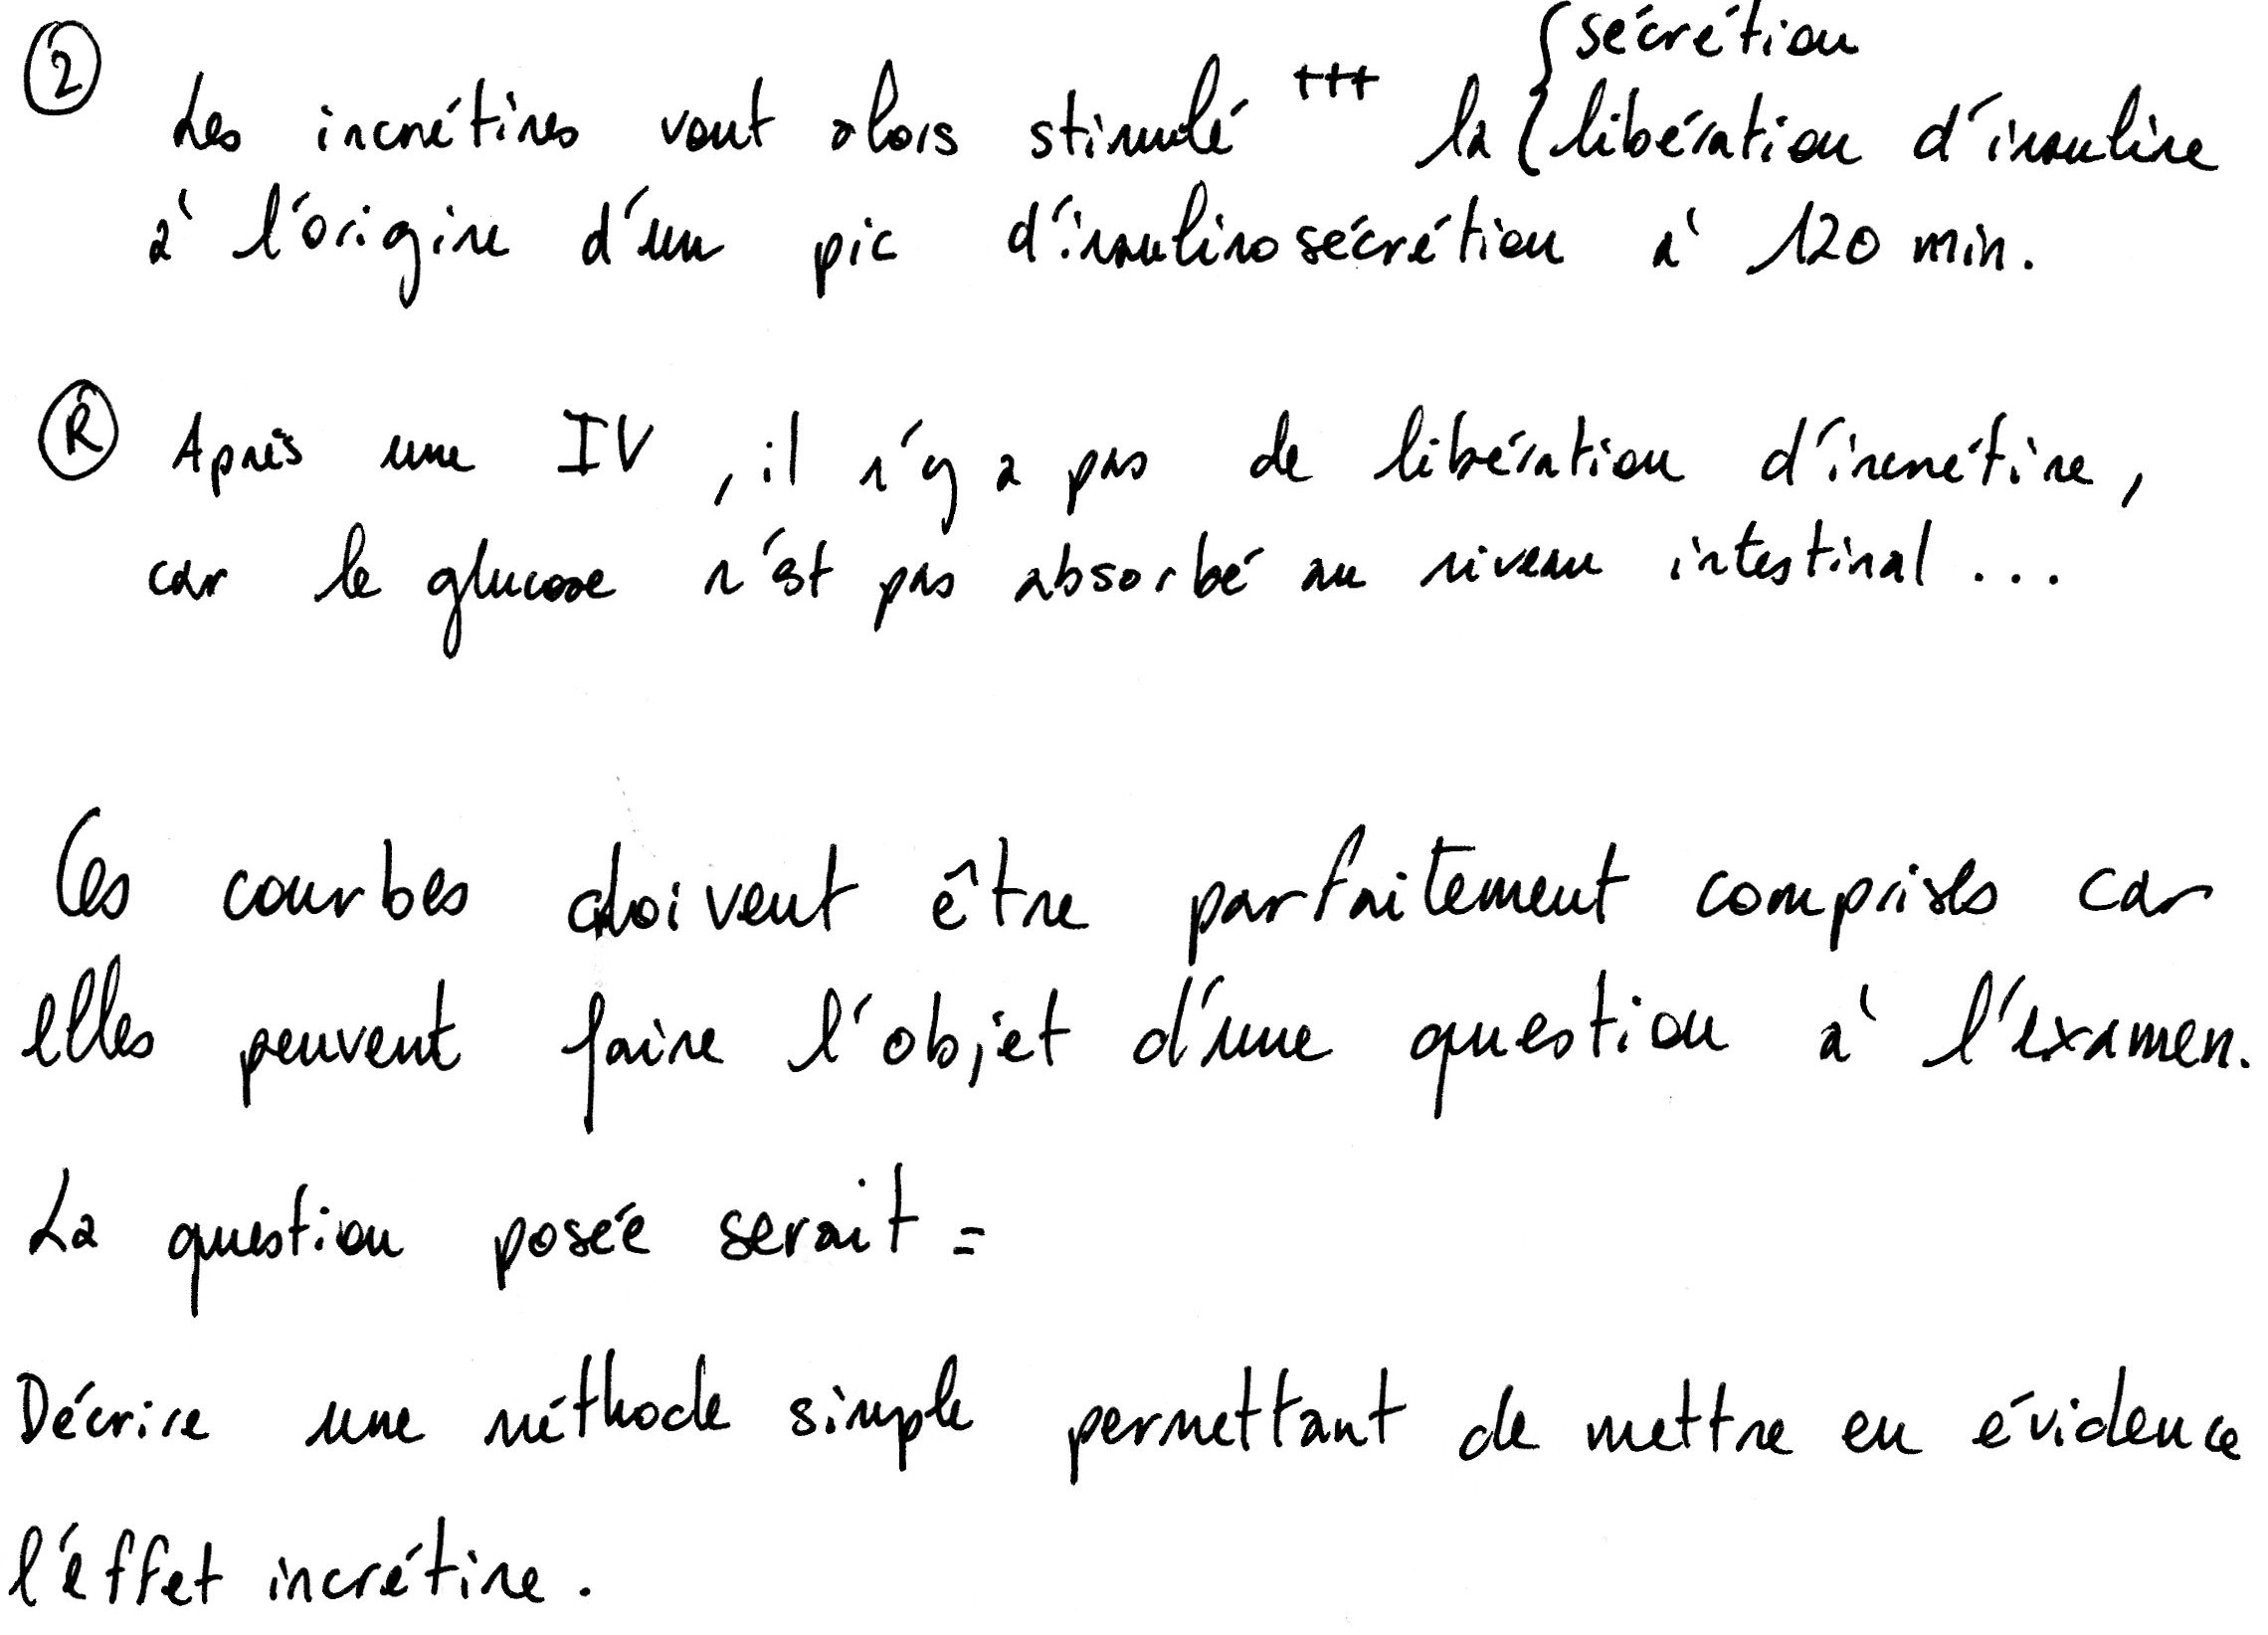 ② { sécrétion
Les incrétines vont alors stimulé +++ la { libération d'insuline
à l'origine d'un pic d'insulinosécrétion à 120 min.
Ⓡ Après une IV, il n'y a pas de libération d'incrétine,
car le glucose n'est pas absorbé au niveau intestinal ...
Ces courbes doivent être parfaitement comprises car
elles peuvent faire l'objet d'une question à l'examen.
La question posée serait =
Décrire une méthode simple permettant de mettre en évidence
l'effet incrétine.